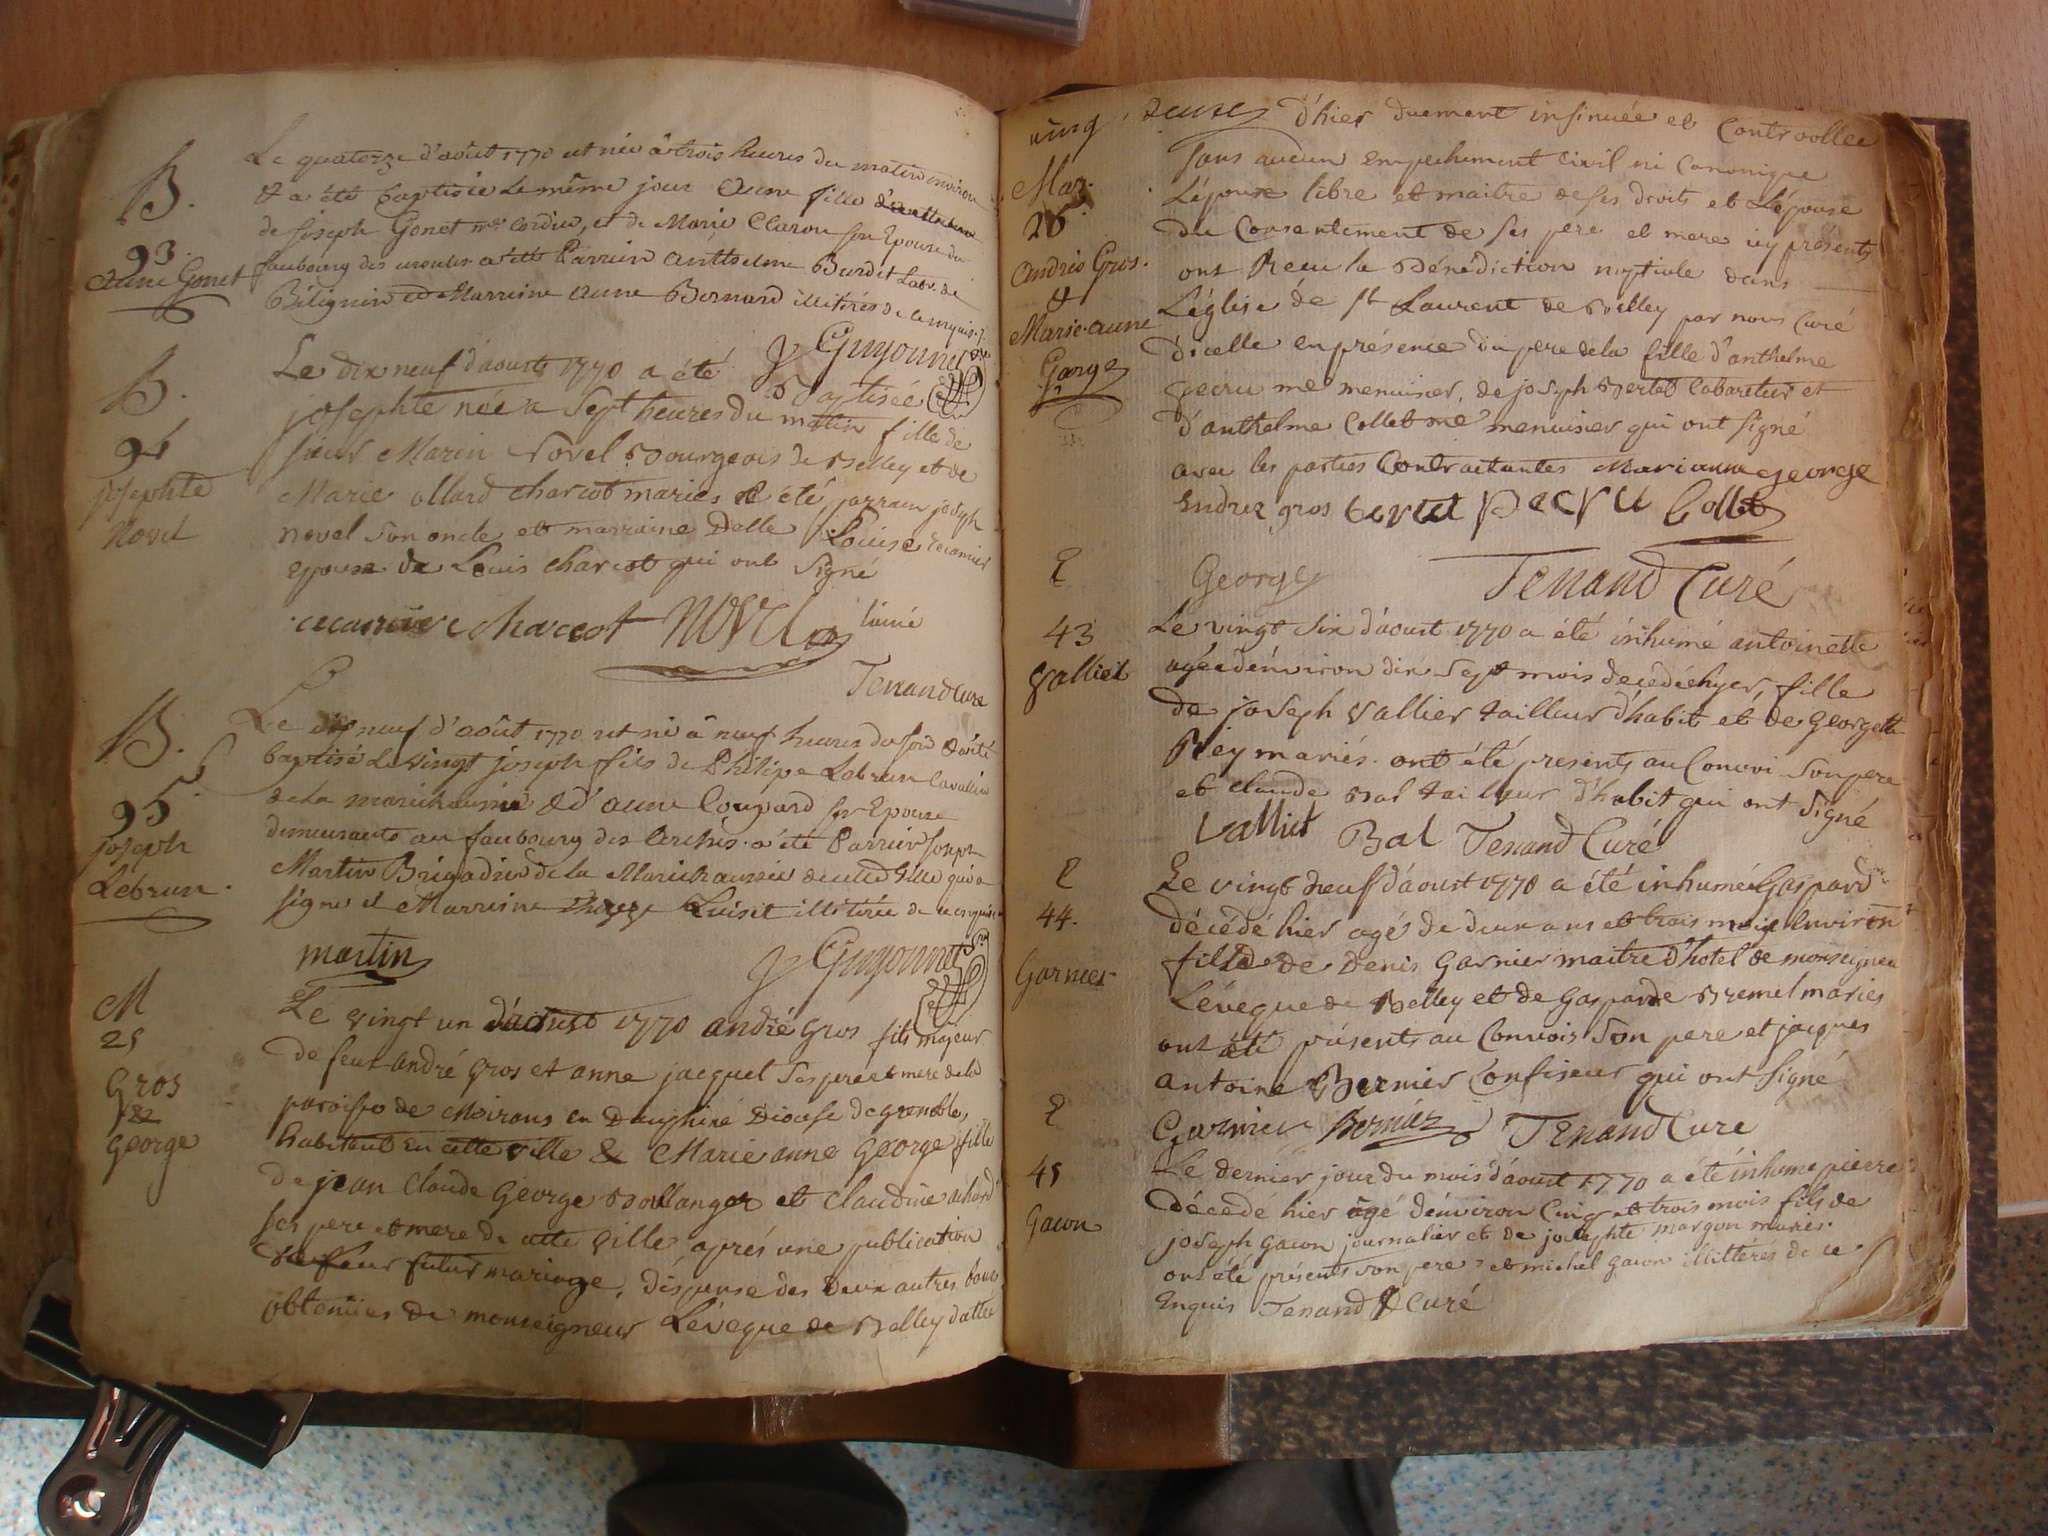 B.
93.
Anne Gonet
Le quatorze d'août 1770 est née à trois heures du matin environ
& a été baptisée le même jour Anne fille
de Joseph Gonet me cordier, et de Marie Claron son Epouse du
faubourg des a été Parrain Anthelme Burdet Labr. de
Bilignin et Marreine Anne Bernard illitérés de ce enquis.
J Guyonnet
B.
94
josephte
Novel
Le dix neuf d'aoust 1770 a été baptisée
josephte née a sept heures du matin fille de
sieur Marin Novel Bourgeois de Belley et de
Marie ollard charcot mariés a été parrain joseph
novel son oncle et marraine Delle Louise
epouse de Louis charcot qui ont signé
charcot NOVEL lainé
Tenand Curé
B.
95.
joseph
Lebrun.
Le dix neuf d'août 1770 est né à neuf heures du soir & a été
baptisé le vingt joseph fils de Philipe Lebrun Cavalier
de la marechaussée & d'anne Coupard son Epouse
demeurants au faubourg des a été Parrein joseph
Martin Brigadier de la Marechaussée de cette Ville qui a
signé et Marreine Luiset illitérée de ce enquise
martin J Guyonnet
M
25
Gros
&
George
Le vingt un d'aoust 1770 andré gros fils majeur
de feu andré gros et anne jacquel ses pere et mere de la
paroisse de Moirans en Dauphiné Diocese de grenoble,
habitant en cette ville & Marie anne George fille
de jean Claude George Boulanger et Claudine achard
ses pere et mere de cette ville, aprés une publication
de leur futur mariage, dispense des deux autres bans
obtenües de monseigneur L'éveque de Belley datée
d'hier duement insinuée et Controollée
Mar.
26
André Gros.
&
Marie-anne
Gorge
sans aucun empechement civil ni Canonique
L'époux libre et maitre de ses droits et L'épouse
du Consentement de ses pere et mere icy présents
ont Receu la Bénédiction nuptiale dans
L'église de st Laurent de Belley par nous Curé
d'icelle en présence du pere de la fille d'anthelme
pecru me menuisier, de joseph Bertet Cabaretier et
d'anthelme Collet me menuisier qui ont signé
avec les parties Contractantes Marianne george
Endrez gros Bertet pecru Collet
George Tenand Curé
E
43
Valliet
Le vingt six d'aoust 1770 a été inhumé antoinette
agée d'environ dix sept mois decedée hyer, fille
de joseph vallier tailleur d'habit et de Georgette
Rey mariés. ont été presents au Convoi son pere
et claude Bal tailleur d'habit qui ont signé
Valliet Bal Tenand Curé
E
44.
Garnier
Le vingt neuf d'aoust 1770 a été inhumé Gaspard
décédé hier agé de deux ans et trois mois Environ
fils de Denis Garnier maitre d'hotel de monseigneur
L'éveque de Belley et de Gasparde Bremel mariés
ont été présents au Convois son pere et jacques
antoine Bernier Confiseur qui ont signé
Garnier Bernier Tenand Curé
E
45
Gacon
Le dernier jour du mois d'aoust 1770 a été inhumé pierre
décédé hier agé d'environ Cinq et trois mois fils de
joseph gacon journalier et de josephte margon mariés.
ont été présents son pere, et michel gacon illittérés de ce
Enquis Tenand Curé